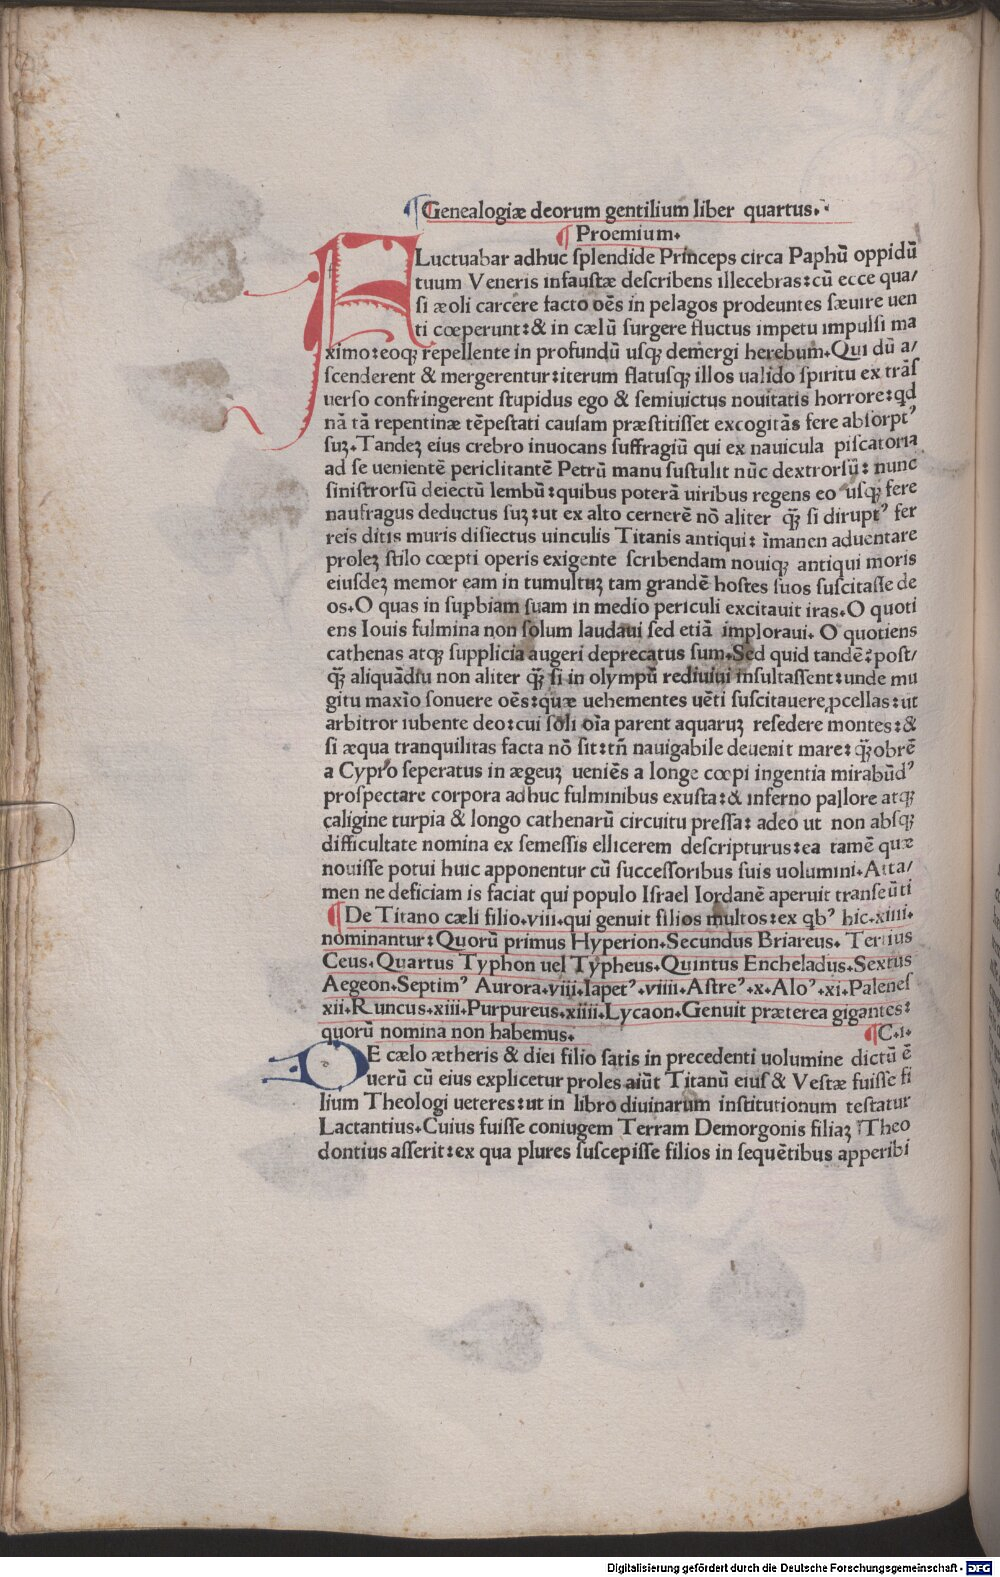 ¶Genealogiæ deorum gentilium liber quartus.
¶ Proemium.
FLuctuabar adhuc splendide Princeps circa Paphū oppidū
tuum Veneris infaustæ describens illecebras: cū ecce qua/
si æoli carcere facto oēs in pelagos prodeuntes sæuire uen
ti cœperunt: & in cælū surgere fluctus impetu impulsi ma
ximo: eoqꝫ repellente in profundū usqꝫ demergi herebum. Qui dū a/
scenderent & mergerentur: iterum flatusqꝫ illos ualido spiritu ex trās
uerso confringerent stupidus ego & semiuictus nouitatis horrore: qd
nā tā repentinæ tēpestati causam præstitisset excogitās fere absorptꝰ
suꝫ. Tandeꝫ eius crebro inuocans suffragiū qui ex nauicula piscatoria
ad se uenientē periclitantē Petrū manu sustulit nūc dextrorsū: nunc
sinistrorsū deiectū lembū: quibus poterā uiribus regens eo usqꝫ fere
naufragus deductus suꝫ: ut ex alto cernerē nō aliter qꝫ̄ si diruptꝰ fer
reis ditis muris disiectus uinculis Titanis antiqui: īmanen aduentare
proleꝫ stilo cœpti operis exigente scribendam nouiqꝫ antiqui moris
eiusdeꝫ memor eam in tumultuꝫ tam grandē hostes suos suscitasse de
os. O quas in supbiam suam in medio periculi excitauit iras. O quoti
ens Iouis fulmina non solum laudaui sed etiā imploraui. O quotiens
cathenas atqꝫ supplicia augeri deprecatus sum. Sed quid tandē? post/
qꝫ̄ aliquādiu non aliter qꝫ̄ si in olympū rediuiui insultassent: unde mu
gitu maxīo sonuere oēs: quæ uehementes uēti suscitauere ꝓcellas: ut
arbitror iubente deo: cui soli oīa parent aquaruꝫ resedere montes: &
si æqua tranquilitas facta nō sit: tn̄ nauigabile deuenit mare: qꝫ̄obrē
a Cypro seperatus in ægeuꝫ ueniēs a longe cœpi ingentia mirabūdꝰ
prospectare corpora adhuc fulminibus exusta: & inferno pallore atqꝫ
caligine turpia & longo cathenarū circuitu pressa: adeo ut non absqꝫ
difficultate nomina ex semessis ellicerem descripturus: ea tamē quæ
nouisse potui huic apponentur cū successoribus suis uolumini. Atta/
men ne deficiam is faciat qui populo Israel Iordanē aperuit transeūti
¶ De Titano cæli filio.viii.qui genuit filios multos: ex qbꝰ hic.xiiii.
nominantur: Quorū primus Hyperion. Secundus Briareus. Tertius
Ceus. Quartus Typhon uel Typheus. Quintus Encheladus. Sextus
Aegeon. Septimꝰ Aurora.viii.Iapetꝰ.viiii.Astreꝰ.x.Aloꝰ.xi.Palenes
xii.Runcus.xiii.Purpureus.xiiii.Lycaon. Genuit præterea gigantes:
quorū nomina non habemus. ¶C.i.
DE cælo ætheris & diei filio satis in precedenti uolumine dictū ē
uerū cū eius explicetur proles aiūt Titanū eius & Vestæ fuisse fi
lium Theologi ueteres: ut in libro diuinarum institutionum testatur
Lactantius. Cuius fuisse coniugem Terram Demorgonis filiaꝫ Theo
dontius asserit: ex qua plures suscepisse filios in sequētibus apperibi
Digitalisierung gefördert durch die Deutsche Forschungsgemeinschaft - DFG